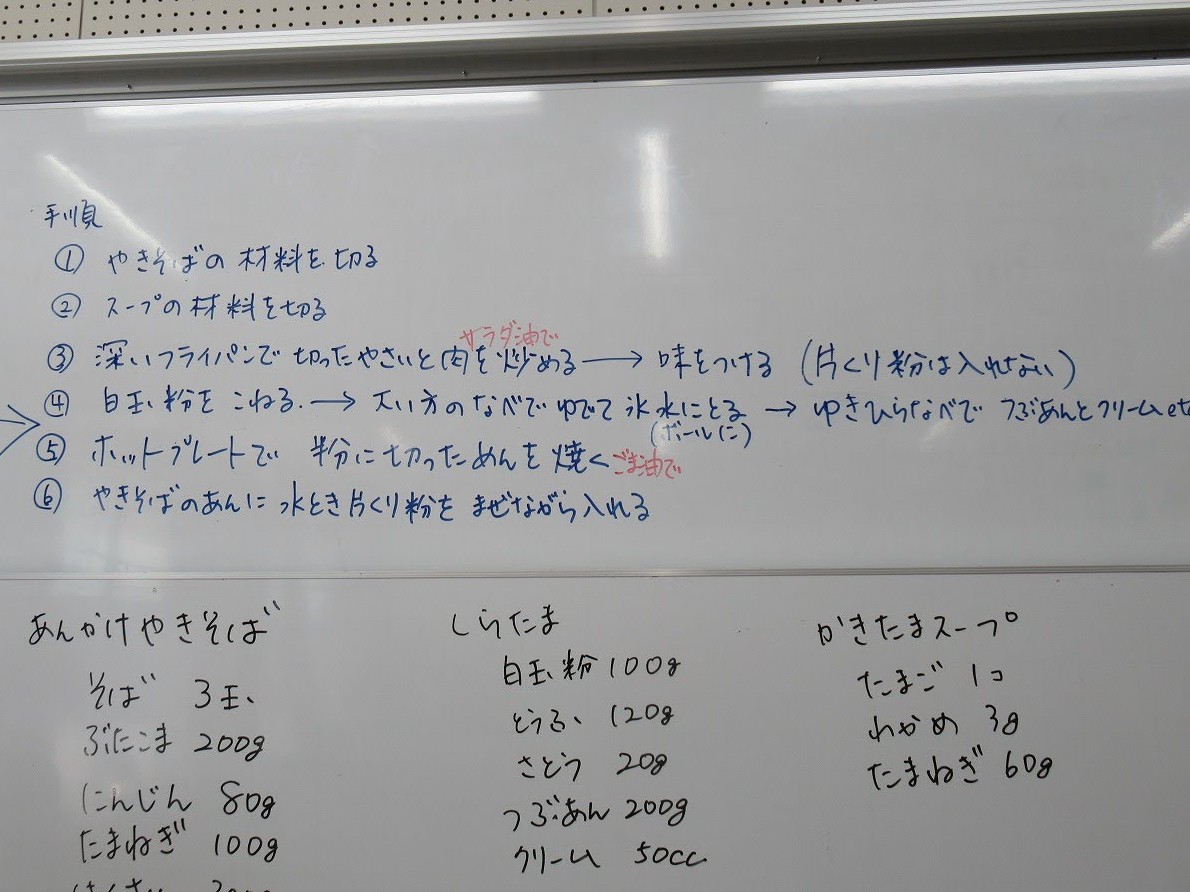 手順
① やきそばの材料を切る
② スープの材料を切る
サラダ油で
③ 深いフライパンで切ったやさいと肉を炒める→味をつける(片くり粉は入れない)
④ 白玉粉をこねる.→大い方のなべでゆでて氷水にとる→ゆきひらなべでつぶあんとクリームetc
(ボールに)
⑤ ホットプレートで 半分に切っためんを焼く ごま油で
⑥ やきそばのあんに水とき片くり粉をまぜながら入れる
あんかけやきそば
そば 3玉
ぶたこま 200g
にんじん 80g
たまねぎ 100g
はくさい
しらたま
白玉粉 100g
とうふ 120g
さとう 20g
つぶあん 200g
クリーム 50cc
かきたまスープ
たまご 1コ
わかめ 3g
たまねぎ 60g